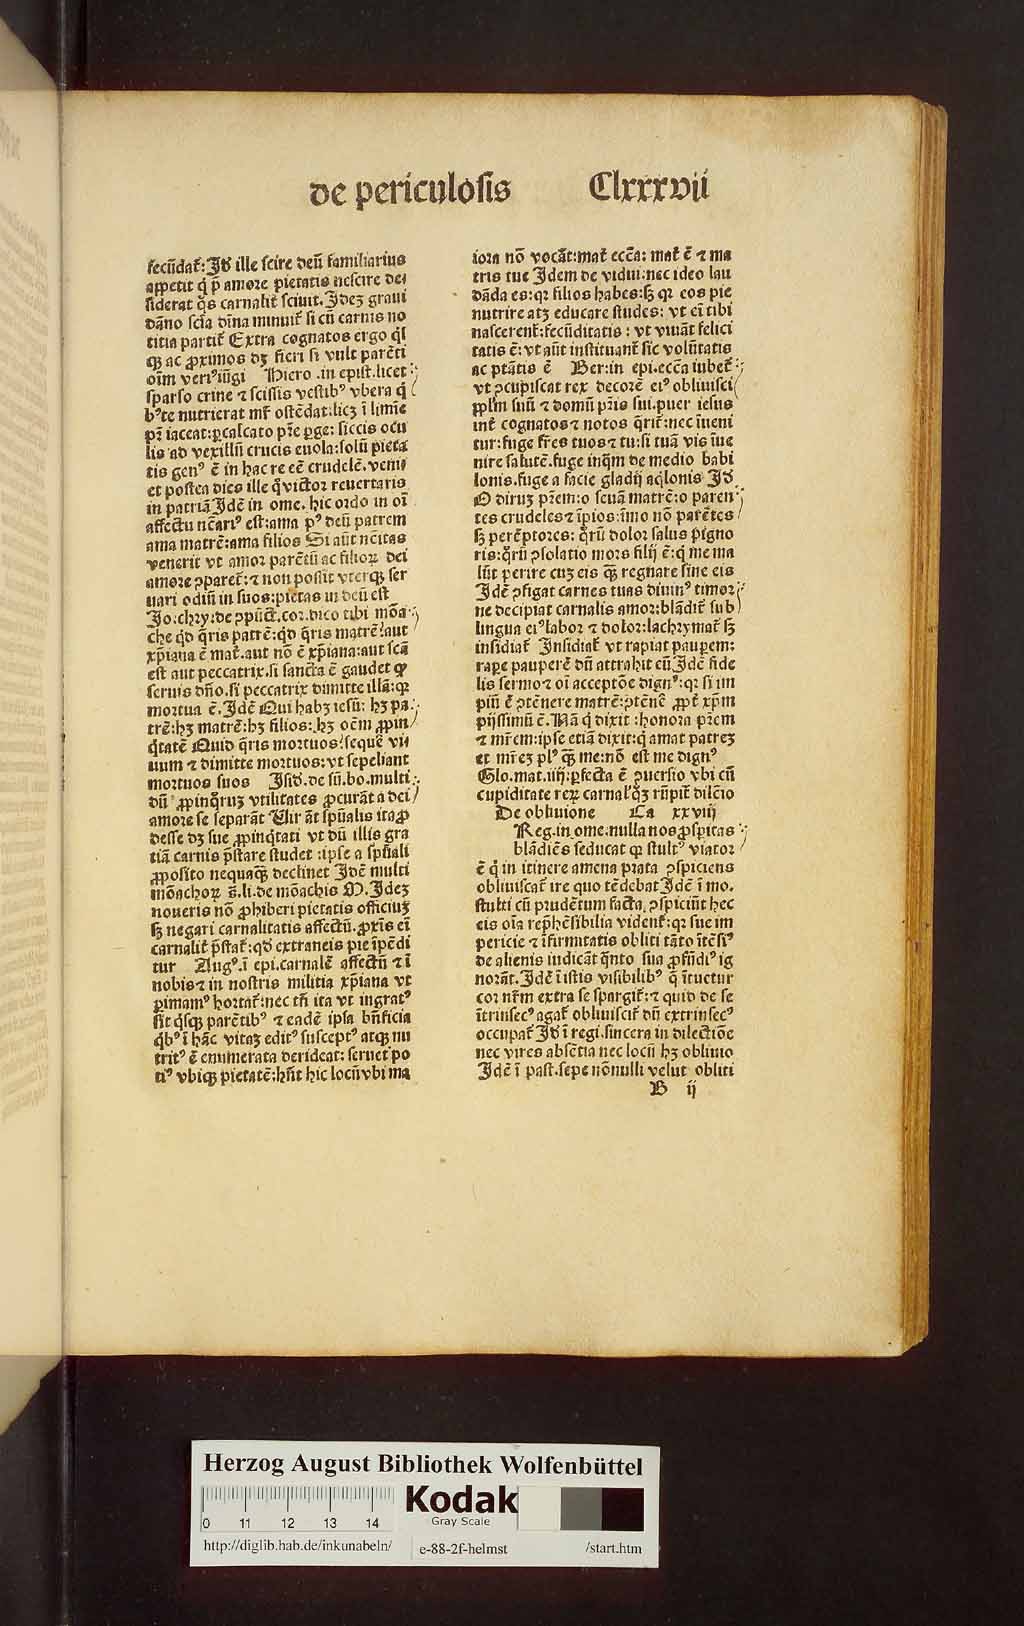 de periculosis Clxxxvii
fecũdat᷑: Id̃ ille scire deũ familiarius
appetit q̃ p̃ amore pietatis nescire de⸗
siderat q̃s carnalit᷑ sciuit. Idez graui
dãno sciã diña minuit᷑ si cũ carnis no
titia partit᷑ Extra cognatos ergo q̃s
qꝫ ac ꝓximos dꝫ fieri si vult parẽti
oĩm veriꝰiũgi Hiero .in epist.licet
sparso crine ⁊ scissis vestibꝰ vbera q̃
bꝰte nutrierat mr̃ ostẽdat:licꝫ ĩ limĩe
pr̃ iaceat:ꝑcalcato pr̃e ꝑge: siccis ocu
lis ad vexillũ crucis euola:solũ pieta
tis genꝰ ẽ in hac re eẽ crudelẽ. veni⸗
et postea dies ille q̃ victor reuertaris
in patriã Idẽ in ome. hic ordo in oĩ
affectu nẽariꝰ est:ama pꝰ deũ patrem
ama matrẽ:ama filios Si aũt nẽitas
venerit vt amor parẽtũ ac filioꝝ dei
amore ꝯparet᷑:⁊ non possit vterqꝫ ser
uari odiũ in suos:pietas in deũ est
Jo:chry:de ꝯpũct̃.cor.dico tibi mõa
che q̃d q̃ris patrẽ:q̃d q̃ris matrẽ:aut
xp̃iana ẽ mat᷑.aut nõ ẽ xp̃iana:aut scã
est aut peccatrix.si sancta ẽ gaudet ꝙ
seruis dño.si peccatrix dimitte illã:qꝛ
mortua ẽ. Idẽ Qui habꝫ iesũ: hꝫ pa
trẽ:hꝫ matrẽ:hꝫ filios:hꝫ oẽm ꝓpin
q̃tatẽ Quid q̃ris mortuos:seque vi⸗
uum ⁊ dimitte mortuos:vt sepeliant
mortuos suos Isid̃.de sũ.bo.multi
dũ ꝓpinq̃ruꝫ vtilitates ꝓcurãt a dei
amore se separãt Uir ãt spũalis ita ꝓ
desse dꝫ sue ꝓpinq̃tati vt dũ illis gra
tiã carnis p̃stare studet :ipse a spũali
ꝓposito nequaqꝫ declinet Idẽ multi
mõachoꝝ ꝫ̃.li.de mõachis M. Idez
noueris nõ ꝓhiberi pietatis officiuꝫ
sꝫ negari carnalitatis affectũ.ꝓxĩs eĩ
carnalit᷑ p̃stat᷑:qd̃ extraneis pie ĩpẽdi
tur Augꝰ.ĩ epi.carnalẽ affectũ ⁊ ĩ
nobis⁊ in nostris militia xp̃iana vt
ꝑimamꝰ hortat᷑:nec tñ ita vt ingratꝰ
sit q̃sqꝫ parẽtibꝰ ⁊ eadẽ ipsa bñficia
q̃bꝰ ĩ hãc vitaꝫ editꝰ susceptꝰ atqꝫ nu
tritꝰ ẽ enumerata derideat: seruet po
tiꝰ vbiqꝫ pietatẽ:hñt hic locũ vbi ma
iora nõ vocãt:mat᷑ ecc̃a: mat᷑ ẽ ⁊ ma
tris tue Idem de vidui:nec ideo lau
dãda es:qꝛ filios habes:sꝫ qꝛ eos pie
nutrire atqꝫ educare studes: vt eĩ tibi
nascerent᷑:fecũditatis : vt viuãt felici
tatis ẽ: vt aũt instituant᷑ sic volũtatis
ac ptãtis ẽ Ber:in epi.ecc̃a iubet᷑
vt ꝯcupiscat rex decorẽ eiꝰ obliuisci
ꝓplm̃ suũ ⁊ domũ pr̃is sui.puer iesus
int᷑ cognatos ⁊ notos q̃rit᷑:nec ĩueni
tur:fuge fr̃es tuos⁊ tu:si tuã vis ĩue
nire salutẽ.fuge inq̃m de medio babi
lonis.fuge a facie gladij aq̃lonis Id̃
O diruꝫ pr̃em:o seuã matrẽ:o paren
tes crudeles⁊ ĩpios:ĩmo nõ parẽtes
sꝫ perẽptores: q̃rũ dolor salus pigno
ris:q̃rũ ꝯsolatio mors filij ẽ:q̃ me ma
lũt perire cuꝫ eis qꝫ̃ regnare sine eis
Idẽ ꝯfigat carnes tuas diuinꝰ timor
ne decipiat carnalis amor:blãdit᷑ sub
lingua eiꝰlabor ⁊ dolor:lachrymat᷑ sꝫ
insidiat᷑ Insidiat᷑ vt rapiat pauꝑem:
raꝑe pauperẽ dũ attrahit eũ Idẽ fide
lis sermo⁊ oĩ acceptõe dignꝰ:qꝛ si im
piũ ẽ ꝯtẽnere matrẽ:ꝯtẽnẽ ꝓpt᷑ xp̃m
pijssimũ ẽ. Nã q̃ dixit :honora pr̃em
⁊ mr̃em:ipse etiã dixit:q̃ amat patreꝫ
et mr̃eꝫ plꝰ qꝫ̃ me:nõ est me dignꝰ
Glo.mat.iiij:ꝑfecta ẽ ꝯuersio vbi cũ
cupiditate reꝝ carnaliũqꝫ rũpit᷑ dilc̃io
De obliuione Ca xxviij
Reg.in ome.nulla nos ꝓsꝑitas
blãdiẽs seducat ꝙ stultꝰ viator
ẽ q̃ in itinere amena prata ꝯspiciens
obliuiscat᷑ ire quo tẽdebat Idẽ ĩ mo.
stulti cũ prudẽtum facta ꝯspiciũt hec
eis oĩa rep̃hẽsibilia vident᷑:qꝛ sue im
pericie ⁊ ĩfirmitatis obliti tãto ĩtẽsiꝰ
de alienis iudicãt q̃nto sua ꝓfũdiꝰ ig
norãt. Idẽ ĩ istis visibilibꝰ q̃ ĩtuetur
cor nr̃m extra se spargit᷑:⁊ quid de se
ĩtrinsecꝰ agat᷑ obliuiscit᷑ dũ extrinsecꝰ
occupat᷑ Id̃ ĩ regi.sincera in dilectiõe
nec vires absẽtia nec locũ hꝫ obliuio
Idẽ ĩ past.sepe nõnulli velut obliti
B ij
Herzog August Bibliothek Wolfenbüttel
0 11 12 13 14
Kodak
Gray Scale
http://diglib.hab.de/inkunabeln/ e-88-2f-helmst /start.htm